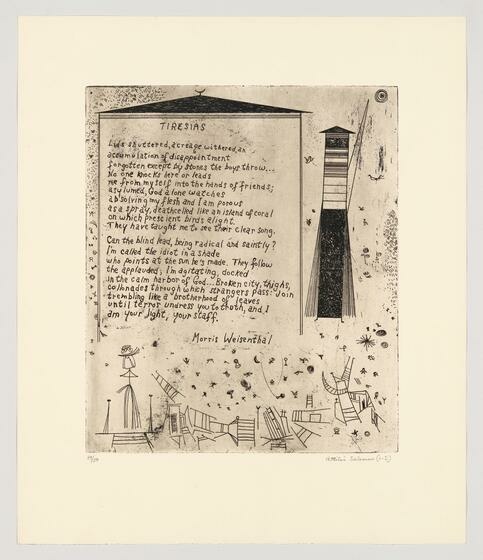 TIRESIAS
Lids shuttered, acreage withered, an
accumulation of disappointment
forgotten except by stones the boys throw...
No one knocks here or leads
me from myself into the hands of friends;
asylumed, God alone watches
absolving my flesh and I am porous
as a spray, deathcelled like an island of coral
on which prescient birds alight.
They have taught me to see their clear song.
Can the blind lead, being radical and saintly?
I'm called the idiot in a shade
who points at the sun he's made. They follow
the applauded; I'm agitating, docked
in the calm harbor of God... Broken city, thighs,
colonnades through which strangers pass: Join
trembling like a brotherhood of leaves
until terror undress you to truth, and I
am your light, your staff.
Morris Weisenthal
/50
Salemme